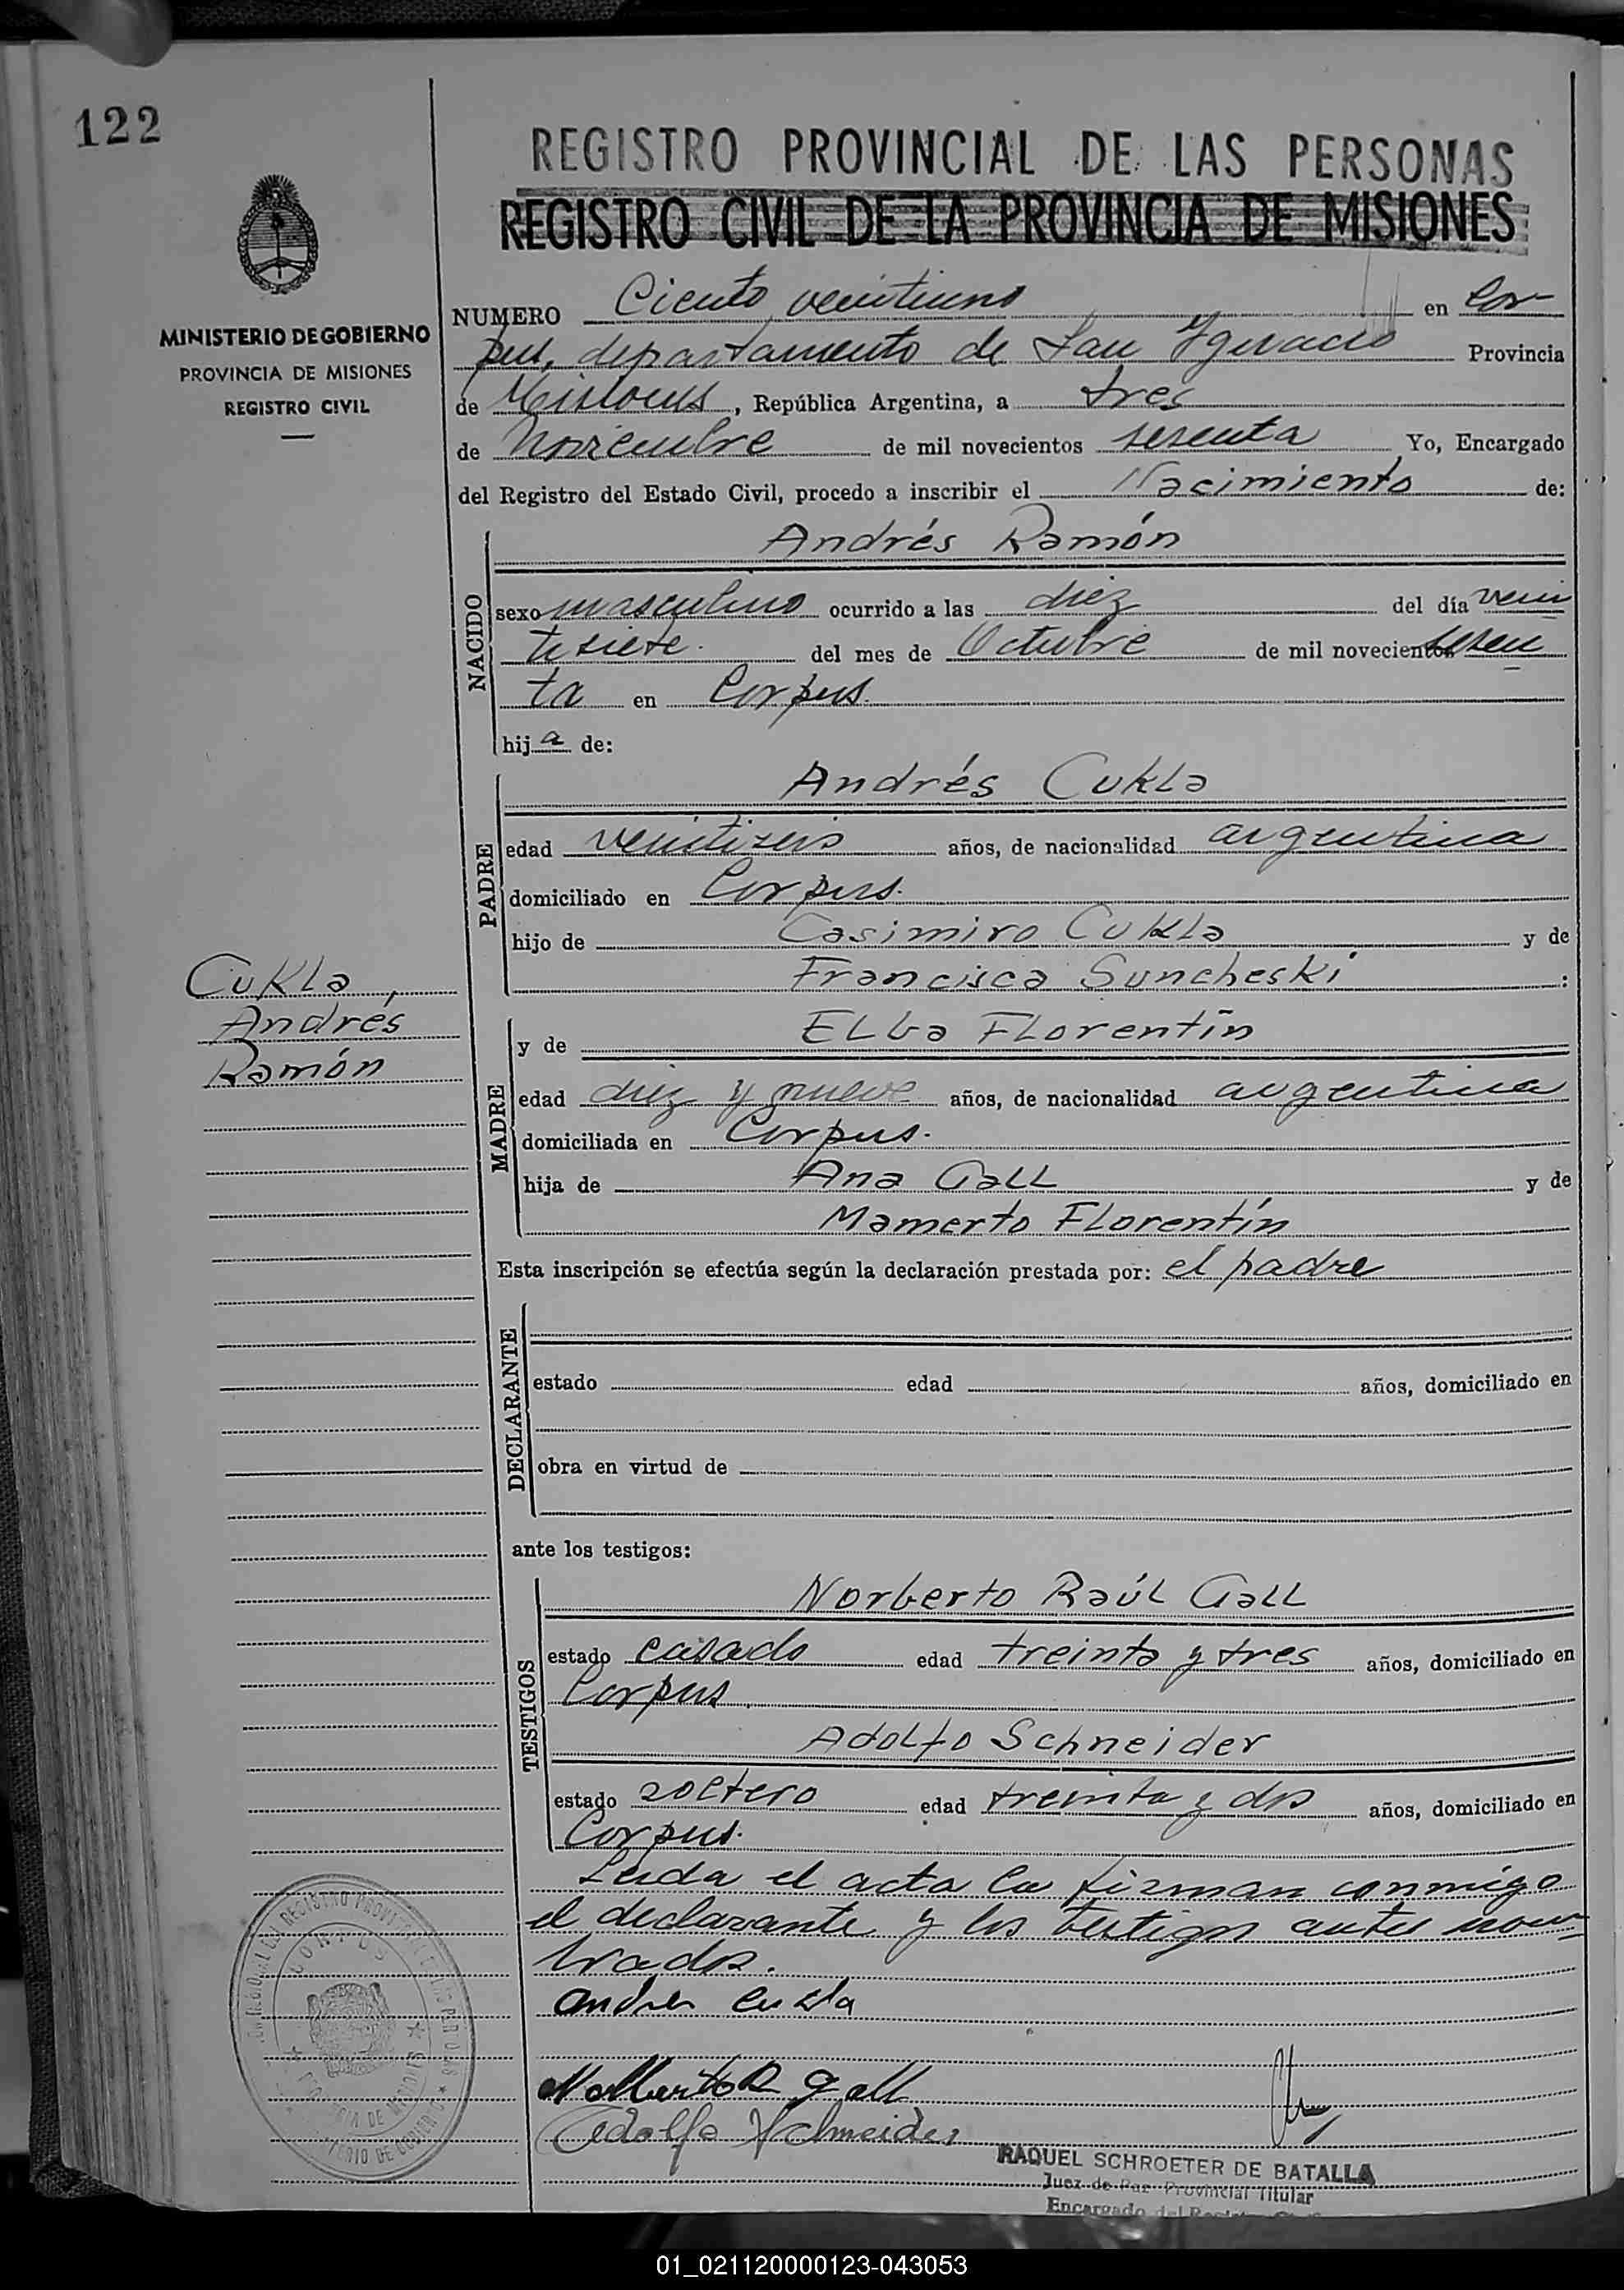 122
REGISTRO PROVINCIAL DE LAS PERSONAS
REGISTRO CIVIL DE LA PROVINCIA DE MISIONES
MINISTERIO DE GOBIERNO
PROVINCIA DE MISIONES
REGISTRO CIVIL
NUMERO Ciento veintiuno en Cor-
pus, departamento de San Ygnacio Provincia
de Misiones, República Argentina, a tres
de Noviembre de mil novecientos sesenta Yo, Encargado
del Registro del Estado Civil, procedo a inscribir el Nacimiento de:
NACIDO
Andrés Ramón
sexo masculino ocurrido a las diez del día vein
tisiete. del mes de Octubre de mil novecientos sesen
ta en Corpus.
hij a de:
PADRE
Andrés Cukla
edad veintiseis años, de nacionalidad argentina
domiciliado en Corpus.
hijo de Casimiro Cukla y de
Francisca Suncheski :
Cukla,
Andrés
Ramón
MADRE
y de Elba Florentín
edad diez y nueve años, de nacionalidad argentina
domiciliada en Corpus.
hija de Ana Gall y de
Mamerto Florentín
Esta inscripción se efectúa según la declaración prestada por: el padre
DECLARANTE
estado edad años, domiciliado en
obra en virtud de
ante los testigos:
TESTIGOS
Norberto Raúl Gall
estado casado edad treinta y tres años, domiciliado en
Corpus.
Adolfo Schneider
estado soltero edad treinta y dos años, domiciliado en
Corpus.
Leida el acta la firman conmigo
el declarante y los testigos antes nom-
brados.
Andres Cukla
Norberto R Gall
Adolfo Schneider
RAQUEL SCHROETER DE BATALLA
Juez de Paz Provincial Titular
Encargado del
CORPUS
PROVINCIA DE MISIONES
01_021120000123-043053